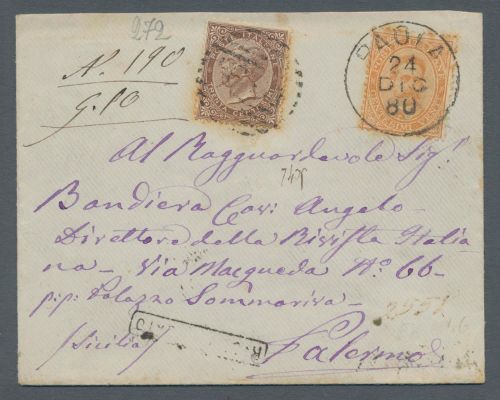 272
N. 190
g. 10
PAOLA
24
DIC
80
Al Ragguardevole Sig.r
Bandiera Cav: Angelo
Direttore della Rivista Italia
na - Via Macqueda N:o 66-
p.p: Palazzo Sommariva -
(Sicilia) Palermo